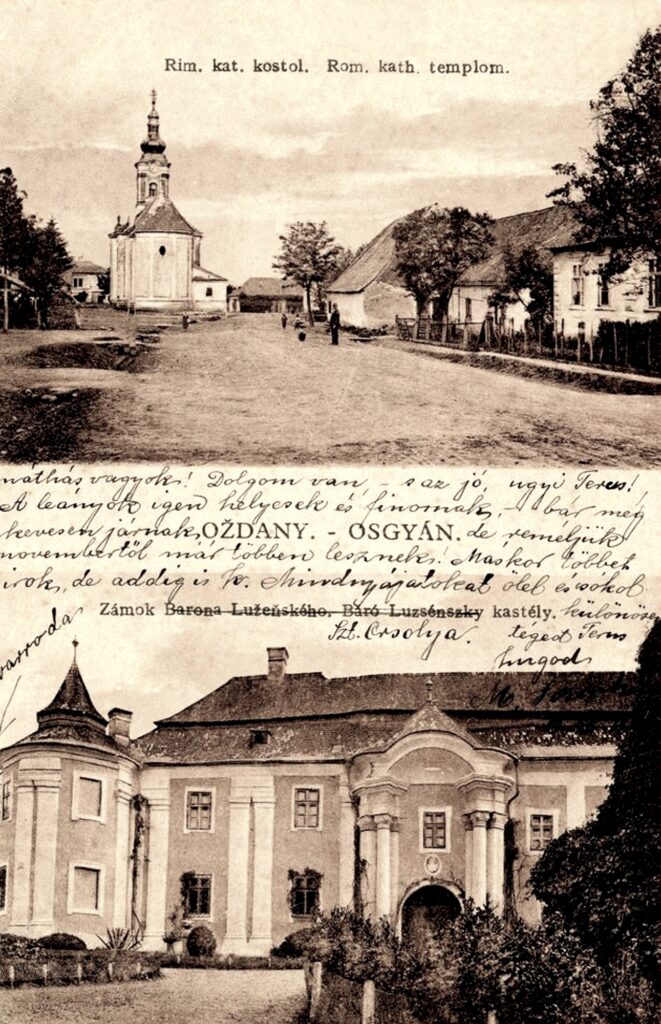 Rim. kat. kostol. Rom. kath. templom.
náthás vagyok! Dolgom van – s az jó, ugyi Terus!
A leányok igen helyesek és finomak, – bár még
kevesen járnak, OŽDANY. - OSGYÁN. de reméljük
novembertől már többen lesznek! Máskor többet
irok, de addig is Mindnyájatokat ölel és csókol
Zámok Barona Luženského. Báró Luzsénszky kastély. különösen
Szt. Orsolya. téged Terus
zárroda